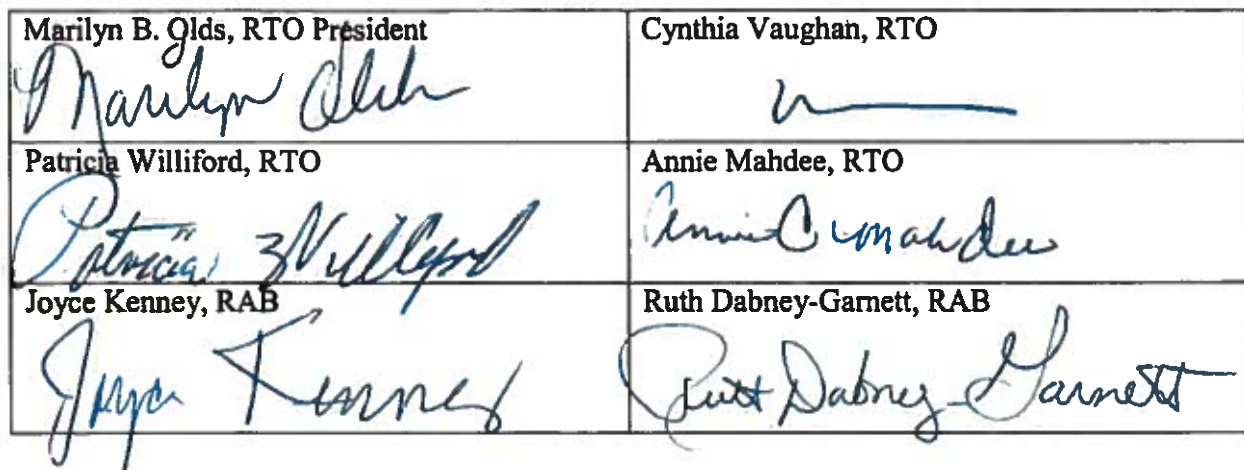 Marilyn B. Olds, RTO President
Marilyn Olds
Cynthia Vaughan, RTO
Patricia Williford, RTO
Patricia Williford
Annie Mahdee, RTO
Annie C Mahdee
Joyce Kenney, RAB
Joyce Kenney
Ruth Dabney-Garnett, RAB
Ruth Dabney-Garnett